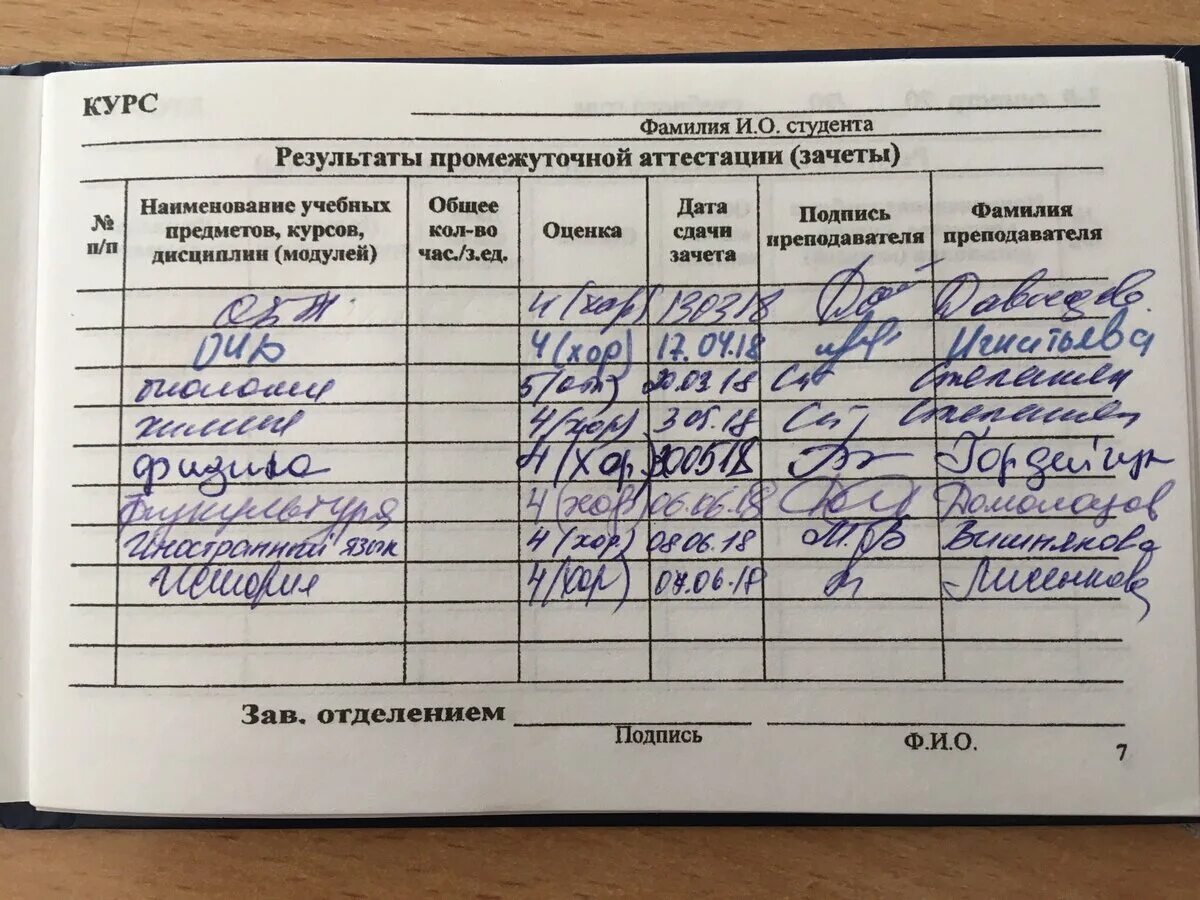 КУРС
Фамилия И.О. студента
Результаты промежуточной аттестации (зачеты)
№ п/п Наименование учебных предметов, курсов, дисциплин (модулей) Общее кол-во час./з.ед. Оценка Дата сдачи зачета Подпись преподавателя Фамилия преподавателя
ОБЖ 4 (хор) 130318 Давыдова
4 (хор) 17.04.18 Игнатьева
биология 5 (отл) 20.03.18
химия 4 (хор) 305.18
физика 4 (хор) 200518 Гордейчук
Физкультура 4 (хор) 06.06.18 Домолазов
Иностранный язык 4 (хор) 08.06.18 Вишнякова
История 4 (хор) 07.06.18
Зав. отделением
Подпись Ф.И.О.
7